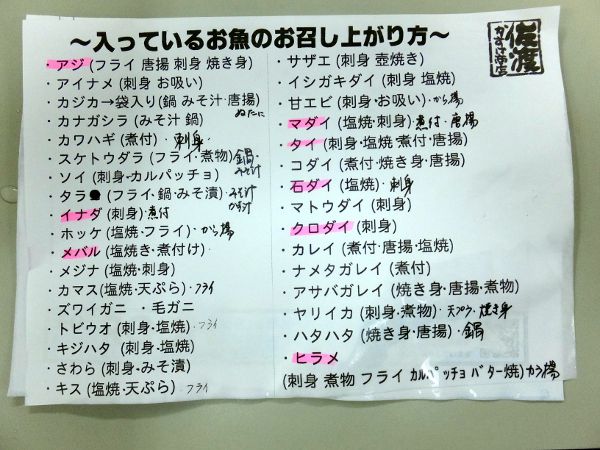 ～入っているお魚のお召し上がり方～
佐渡
・アジ (フライ 唐揚 刺身 焼き身)
・アイナメ (刺身 お吸い)
・カジカ→袋入り(鍋 みそ汁・唐揚)
・カナガシラ (みそ汁 鍋) ぬたに
・カワハギ (煮付)・刺身・
・スケトウダラ (フライ・煮物) 鍋・みそ汁
・ソイ (刺身・カルパッチョ)
・タラ● (フライ・鍋・みそ漬)・みそ汁 かす汁
・イナダ (刺身) 煮付
・ホッケ (塩焼・フライ)・から揚
・メバル (塩焼き・煮付け)・
・メジナ (塩焼・刺身)
・カマス (塩焼・天ぷら)・フライ
・ズワイガニ ・毛ガニ
・トビウオ (刺身・塩焼)・フライ
・キジハタ (刺身・塩焼)
・さわら (刺身・みそ漬)
・キス (塩焼・天ぷら)・フライ
・サザエ (刺身 壺焼き)
・イシガキダイ (刺身 塩焼)
・甘エビ (刺身・お吸い)・から揚
・マダイ (塩焼・刺身)・煮付・唐揚
・タイ (刺身・塩焼・煮付・唐揚)
・コダイ (煮付・焼き身・唐揚)
・石ダイ (塩焼)・刺身
・マトウダイ (刺身)
・クロダイ (刺身)
・カレイ (煮付・唐揚・塩焼)
・ナメタガレイ (煮付)
・アサバガレイ (焼き身・唐揚・煮物)
・ヤリイカ (刺身・煮物)・天プラ・焼き身
・ハタハタ (焼き身・唐揚)・鍋
・ヒラメ
(刺身 煮物 フライ カルパッチョ バター焼) カラ揚